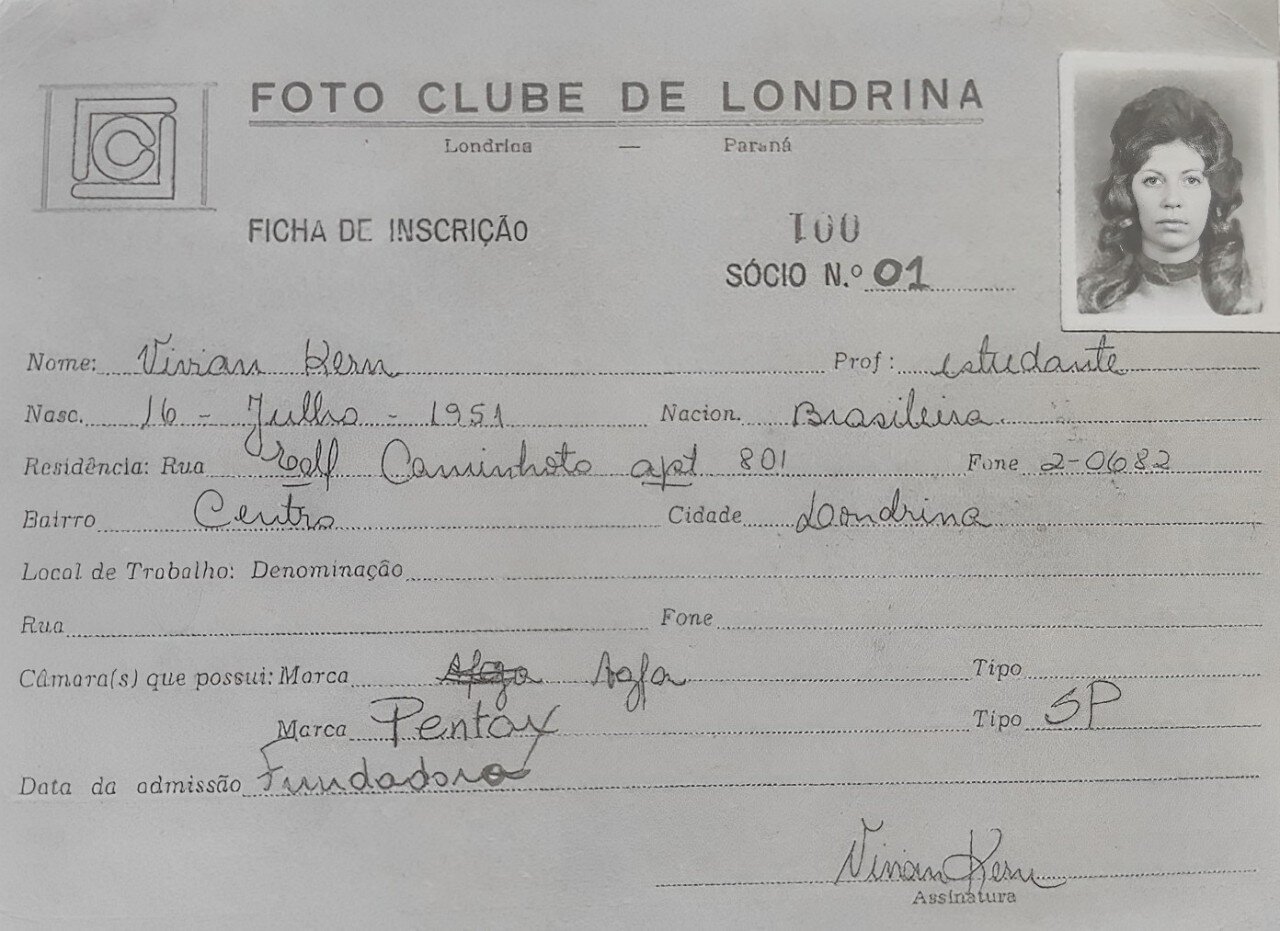 FOTO CLUBE DE LONDRINA
Londrina — Paraná
FICHA DE INSCRIÇÃO
100
SÓCIO N.º 01
Nome: Vivian Kern Prof: estudante
Nasc. 16 - Julho - 1951 Nacion. Brasileira
Residência: Rua Caminhoto apt 801 Fone 2-0682
Bairro Centro Cidade Londrina
Local de Trabalho: Denominação
Rua Fone
Câmara(s) que possui: Marca Agfa Tipo
Marca Pentax Tipo SP
Data da admissão Fundadora
Vivian Kern
Assinatura